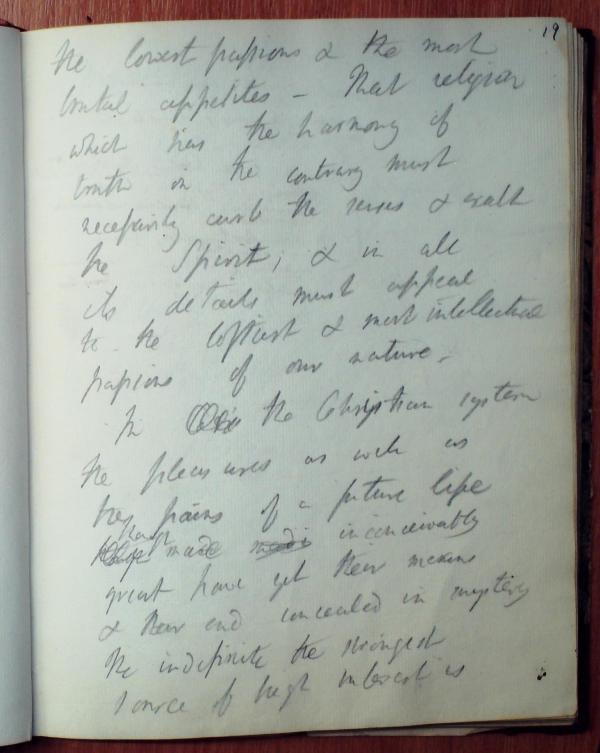 19
the lowest passions & the most
brutal appetites – That religion
which has the harmony of
truth on the contrary must
necessarily curb the senses & exalt
the Spirit; & in all
its details must appeal
to the loftiest & most intellectual
passions of our nature. –
In the Christian system
the pleasures as well as
the pains of a future life
though made inconceivably
great have yet their means
& their end concealed in mystery
the indefinite the strongest
source of high interest is